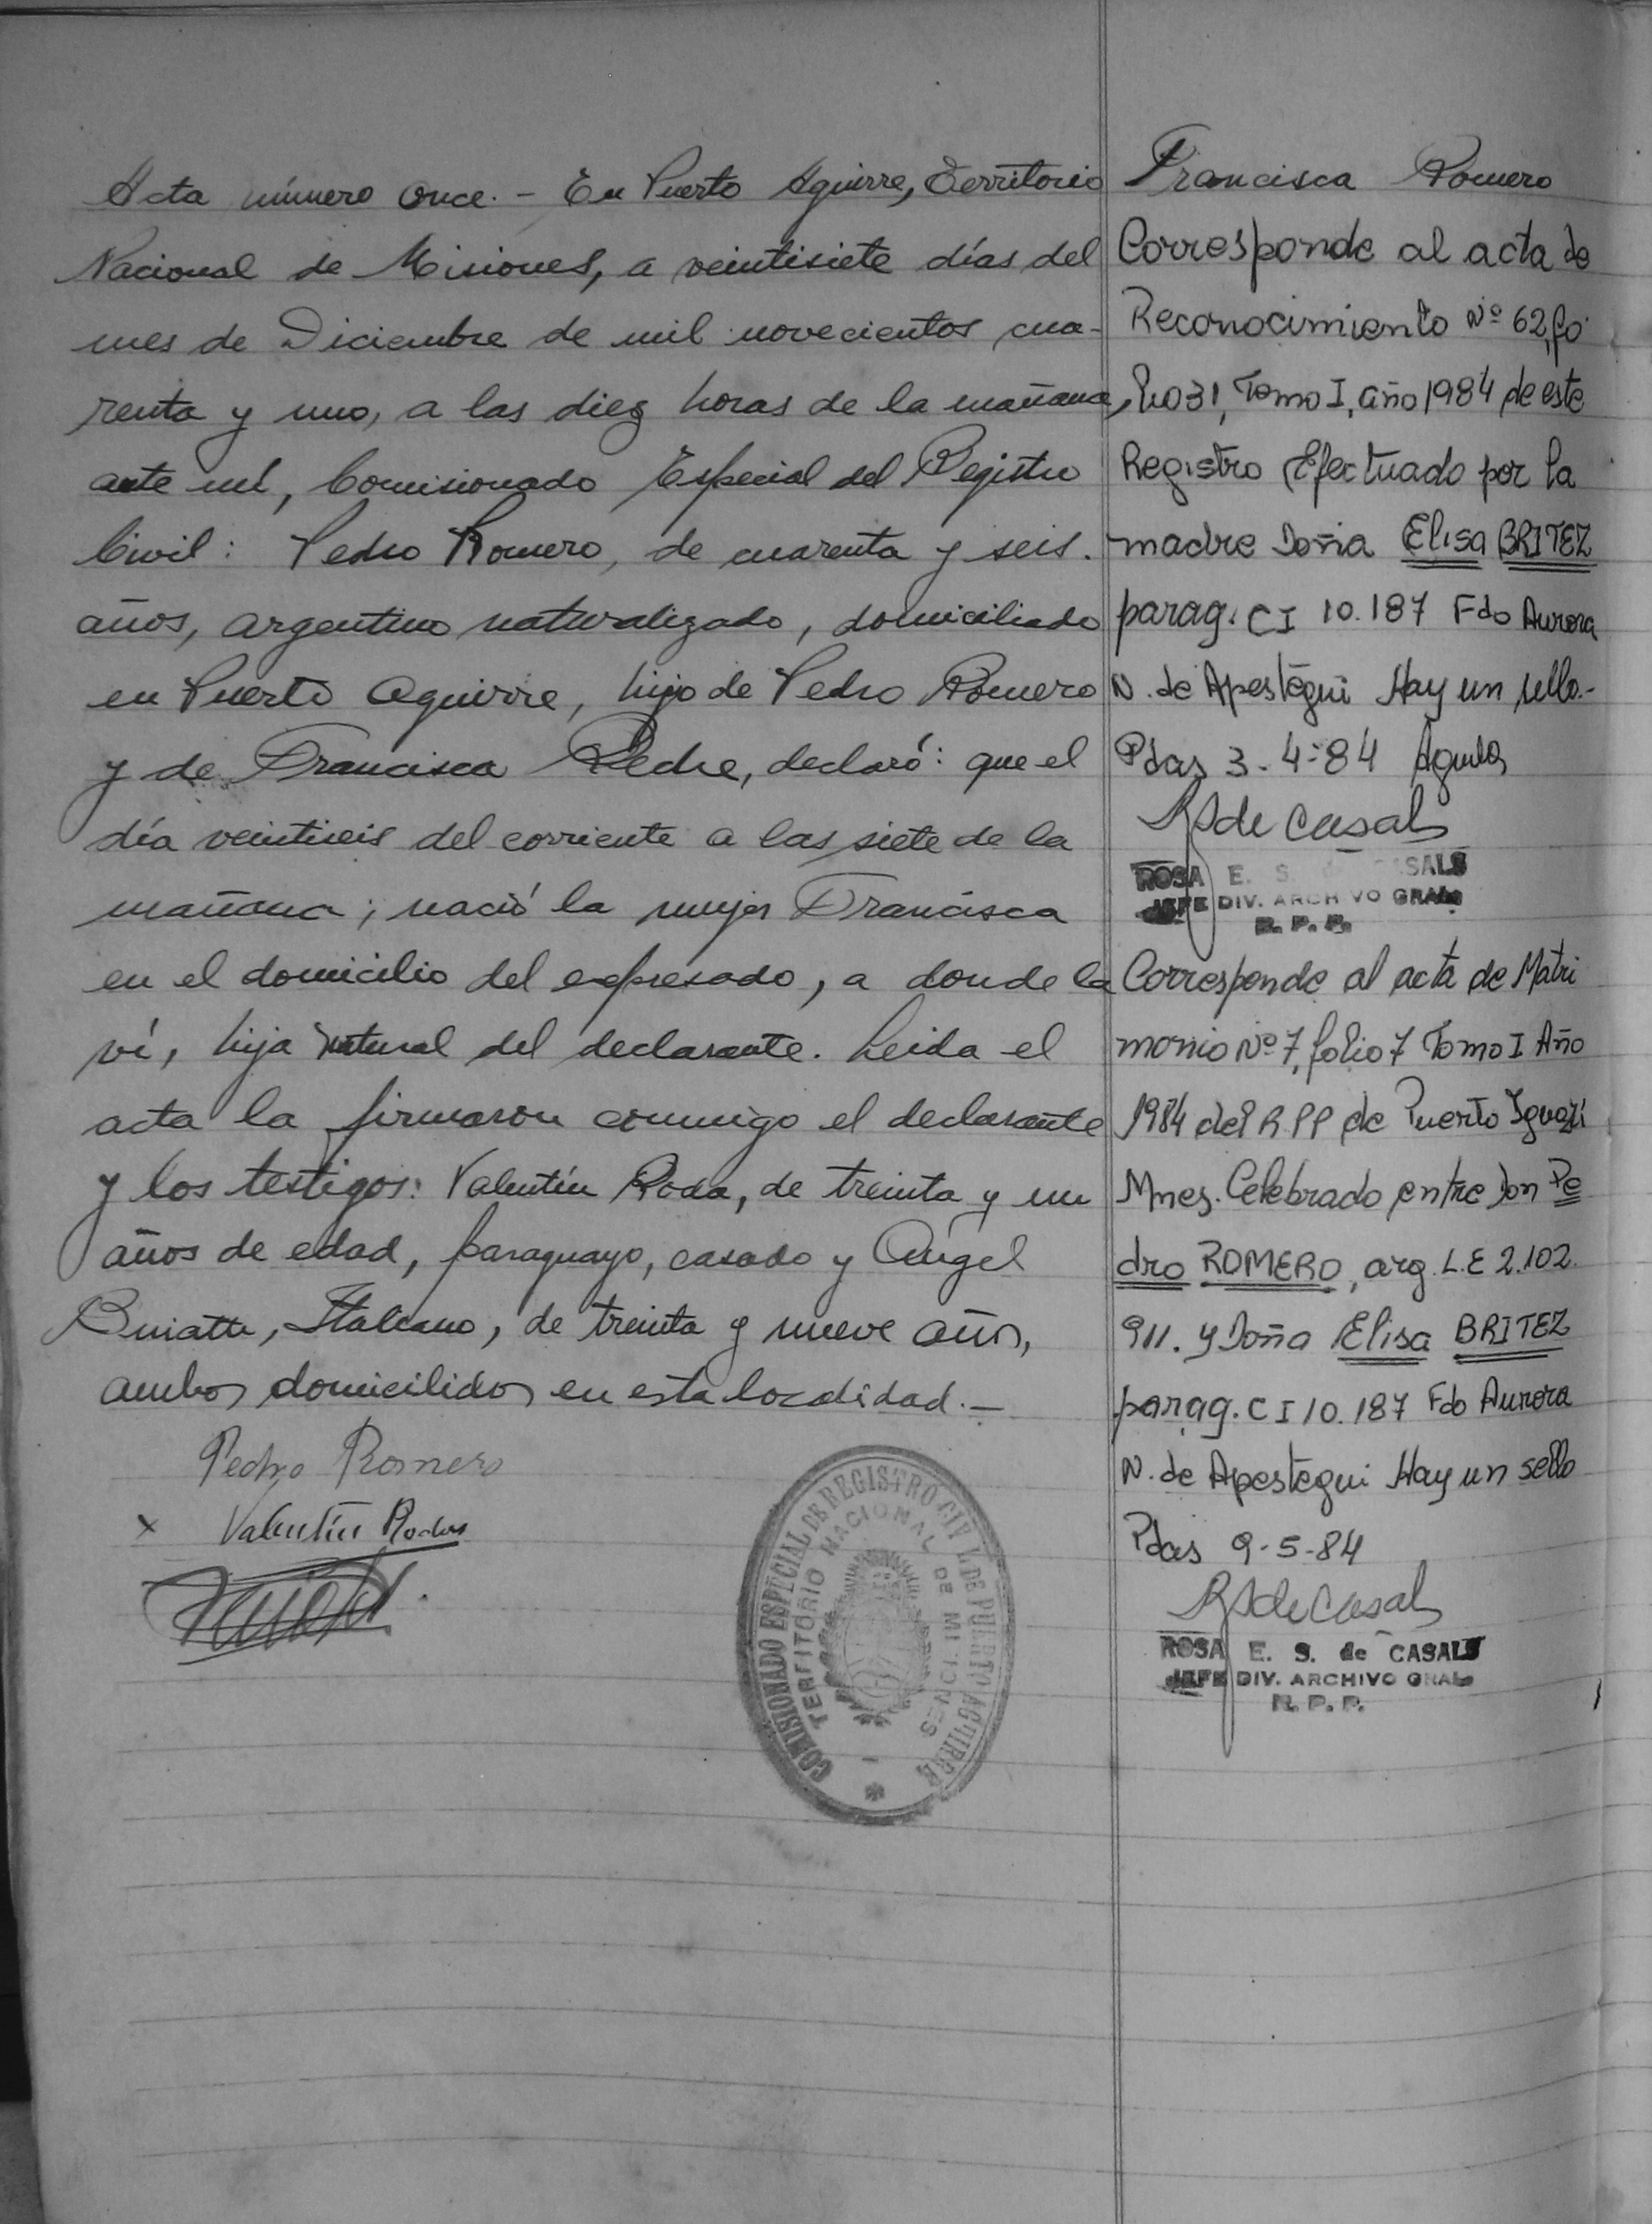 Acta número once. - En Puerto Aguirre, Territorio
Nacional de Misiones, a veintisiete días del
mes de Diciembre de mil novecientos cua-
renta y uno, a las diez horas de la mañana,
ante mí, Comisionado Especial del Registro
Civil: Pedro Romero, de cuarenta y seis.
años, argentino naturalizado, domiciliado
en Puerto Aguirre, hijo de Pedro Romero
y de Francisca declaró: que el
día veintiseis del corriente a las siete de la
mañana; nació la mujer Francisca
en el domicilio del expresado, a donde la
ví, hija natural del declarante. Leida el
acta la firmaron conmigo el declarante
y los testigos: Valentín Roda, de treinta y un
años de edad, paraguayo, casado y Angel
Italiano, de treinta y nueve años,
ambos domicilidos en esta localidad.-
Pedro Romero
x Valentín Rodas
COMISIONADO ESPECIAL DE REGISTRO CIVIL DE PUERTO AGUIRRE
TERRITORIO NACIONAL DE MISIONES
Francisca Romero
Corresponde al acta de
Reconocimiento Nº 62, fo
lio 31, Tomo I, año 1984 de este
Registro Efectuado por la
madre Doña Elisa BRITEZ
parag. CI 10.187 Fdo Aurora
N. de Apestegui Hay un sello.-
Pdas 3-4-84
R S de Casals
ROSA E. S. de CASALS
JEFE DIV. ARCHIVO GRAL
R. P. P.
Corresponde al acta de Matri
monio Nº 7, folio 7 Tomo I Año
1984 del R.PP de Puerto Iguazú
Mnes. Celebrado entre Don Pe
dro ROMERO, arg. L.E 2.102.
911. y Doña Elisa BRITEZ
parag. C I 10.187 Fdo Aurora
N. de Apestegui Hay un sello
Pdas 9-5-84
R S de Casals
ROSA E. S. de CASALS
JEFE DIV. ARCHIVO GRAL
R. P. P.